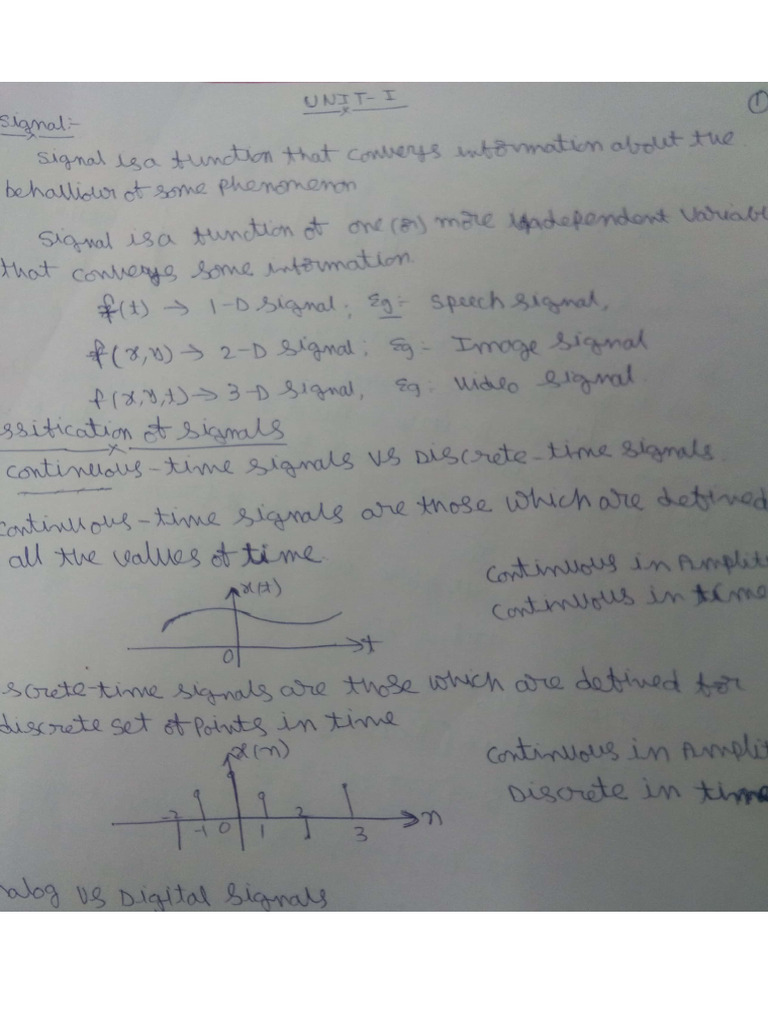 UNIT-I
1
Signal:-
Signal is a function that converys information about the
behalliour of some phenomenon
Signal is a function of one (or) more independent variabl
that converys some information.
f(t) → 1-D Signal; Eg:- Speech Signal,
f(x,y) → 2-D Signal; Eg:- Image Signal
f(x,y,t) → 3-D Signal, Eg: Video Signal.
ssification of Signals
continuous-time signals vs Discrete-time signals.
continuous-time signals are those which are defined
all the values of time.
continuous in Amplit
continuous in time
x(t)
t
0
screte-time signals are those which are defined for
discrete set of points in time
x(n)
continuous in Amplit
Discrete in time
-2 -1 0 1 2 3 n
nalog vs Digital Signals